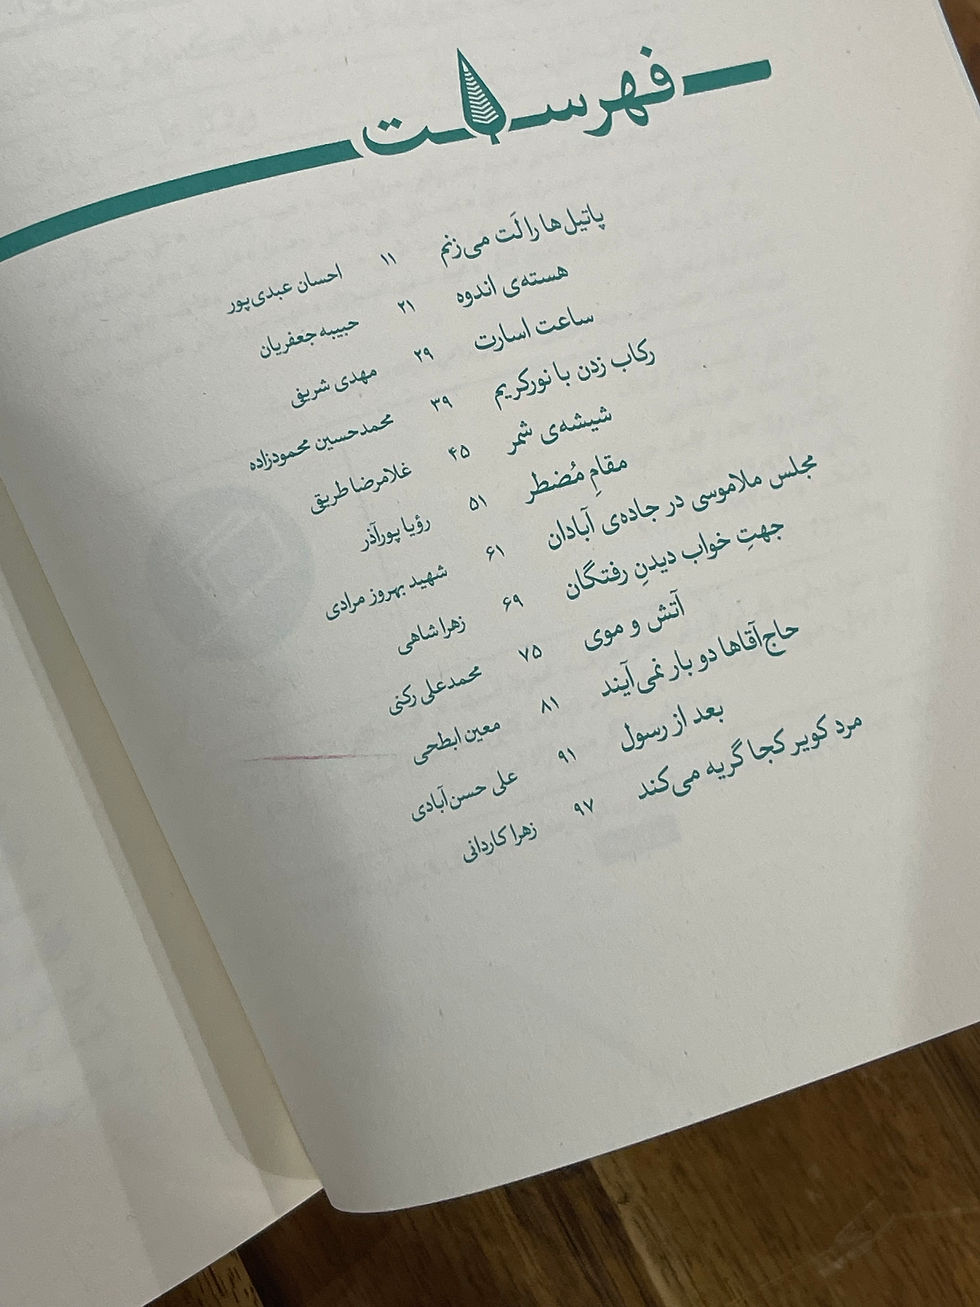 فهرست
پاتیل‌ها را لَت می‌زنم ۱۱ احسان عبدی‌پور
هسته‌ی اندوه ۲۱ حبیبه جعفریان
ساعت اسارت ۲۹ مهدی شریفی
رکاب زدن با نورکریم ۳۹ محمدحسین محمودزاده
شیشه‌ی شمر ۴۵ غلامرضا طریقی
مقامِ مُضطر ۵۱ رؤیا پورآذر
مجلس ملاموسی در جاده‌ی آبادان ۶۱ شهید بهروز مرادی
جهتِ خواب دیدنِ رفتگان ۶۹ زهرا شاهی
آتش و موی ۷۵ محمدعلی رکنی
حاج‌آقاها دو بار نمی‌آیند ۸۱ معین ابطحی
بعد از رسول ۹۱ علی حسن‌آبادی
مرد کویر کجا گریه می‌کند ۹۷ زهرا کاردانی